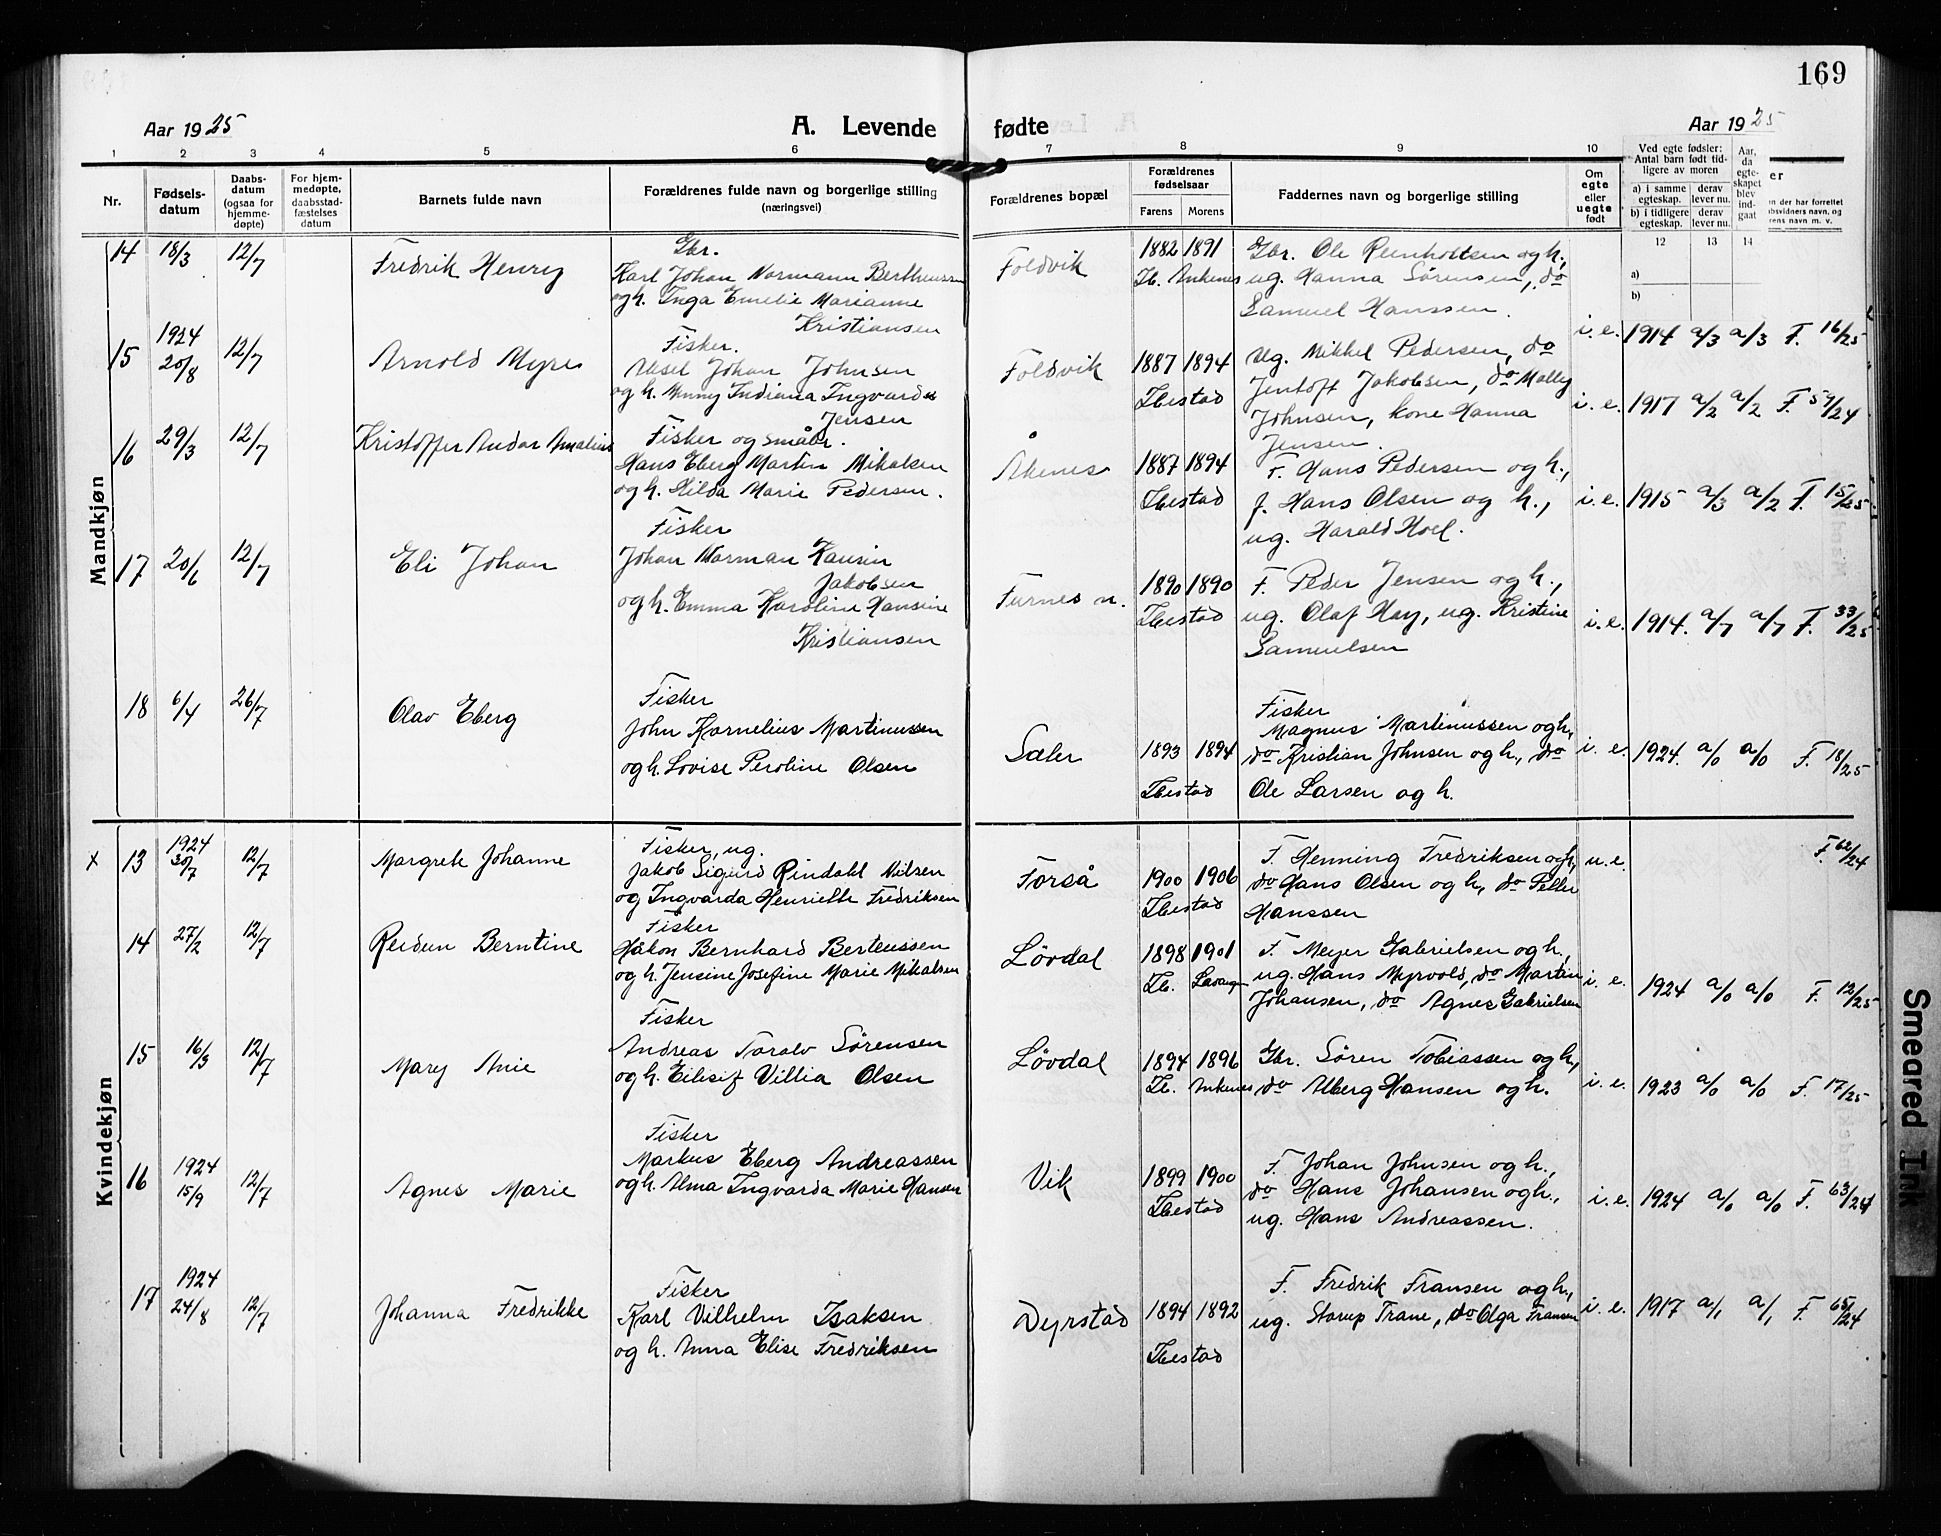 169
Aar 1925
A. Levende fødte
Aar 1925
1 2 3 4 5 6 7 8 9 10 12 13 14
Nr.
Fødsels-
datum
Daabs-
datum
(ogsaa for
hjemme-
døpte)
For hjem-
medøpte,
daabsstad-
fæstelses
datum
Barnets fulde navn
Forældrenes fulde navn og borgerlige stilling
(næringsvei)
Forældrenes bopæl
Forældrenes
fødselsaar
Farens Morens
Faddernes navn og borgerlige stilling
Om
egte
eller
uegte
født
Ved egte fødsler:
Antal barn født tid-
ligere av moren
a) i samme
egteskap.
derav
lever nu.
b) i tidligere
egteskap.
derav
lever nu.
Aar,
da
egte-
skapet
blev
ind-
gaat
a)
b)
Mandkjøn
14 18/3 12/7 Fredrik Henry
Gbr.
Karl Johan Normann Bertheussen
og h. Inga Emelie Marianne
Kristiansen
Foldvik
1882 1891
Ib. Ankenes
Gbr. Ole Reinholtsen og h.,
ug. Hanna Sørensen, do
Samuel Hanssen.
i. e. 1914 a/3 a/3 F. 16/25
15 1924
20/8 12/7 Arnold Myre
Fisker.
Aksel Johan Johnsen
og h. Minny Indiana Ingvarda
Jensen
Foldvik
1887 1894
Ibestad
ug. Mikkel Pedersen, do
Jentoft Jakobsen, do Molly
Johnsen, kone Hanna
Jensen.
i. e. 1917 a/2 a/2 F. 59/24
16 29/3 12/7 Kristoffer Andor Amalius
Fisker og småbr.
Hans Eberg Martin Mikalsen
og h. Hilda Marie Pedersen.
Åkenes
1887 1894
Ibestad
F. Hans Pedersen og h.,
f. Hans Olsen og h.,
ug. Harald Hoel.
i. e. 1915 a/3 a/2 F. 15/25
17 20/6 12/7 Eli Johan
Fisker
Johan Norman Kausin
Jakobsen
og h. Emma Karoline Hansine
Kristiansen
Furnes n.
1890 1890
Ibestad
F. Peder Jensen og h.,
ug. Olaf Hay, ug. Kristine
Samuelsen
i. e. 1914. a/7 a/7 F. 33/25
18 6/4 26/7 Olav Eberg
Fisker
John Kornelius Martinussen
og h. Lovise Peroline Olsen
Sæler
1893 1894
Ibestad
Fisker
Magnus Martinussen og h,
do Kristian Johnsen og h., do
Ole Larsen og h.
i. e. 1924. a/0 a/0 F. 18/25
Kvindekjøn
x 13 1924
30/7 12/7 Margrek Johanne
Fisker, ug.
Jakob Sigurd Rindahl Nilsen
og Ingvarda Henriette Fredriksen
Forså
1900 1906
Ibestad
F. Henning Fredriksen og h,
do Hans Olsen og h, do Petter
Hanssen
u. e. F. 62/24
14 27/2 12/7 Reidun Berntine
Fisker
Håkon Bernhard Berteussen
og h. Jensine Josefine Marie Mikalsen
Løvdal
1898 1901
Ib. Lavangen
F. Meyer Gabrielsen og h.,
ug. Hans Myrvold, do Martin
Johansen, do Agnes Gabrielsen
i. e. 1924 a/0 a/0 F. 12/25
15 16/3 12/7 Mary Anie
Fisker
Andreas Toralv Sørensen
og h. Eilisif Villia Olsen
Løvdal
1894 1896
Ib. Ankenes
Gbr. Søren Tobiassen og h,
do Alberg Hansen og h.
i. e. 1923 a/0 a/0 F. 17/25
16 1924
15/9 12/7 Agnes Marie
Fisker
Markus Eberg Andreassen
og h. Alma Ingvarda Marie Hansen
Vik
1899 1900
Ibestad
F. Johan Johnsen og h.,
do Hans Johansen og h.,
ug. Hans Andreassen.
i. e. 1924 a/0 a/0 F. 63/24
17 1924
24/8 12/7 Johanna Fredrikke
Fisker
Karl Vilhelm Isaksen
og h. Anna Elise Fredriksen
Dyrstad
1894 1892
Ibestad
F. Fredrik Fransen og h.,
ug. Storup Trane, do Olga Fransen
i. e. 1917 a/1 a/1 F. 65/24
Smeared Ink